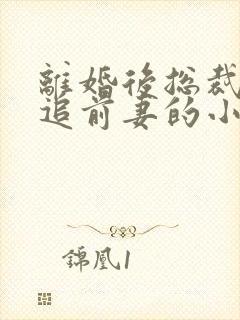 離婚後总裁
追前妻的小
錦凰1